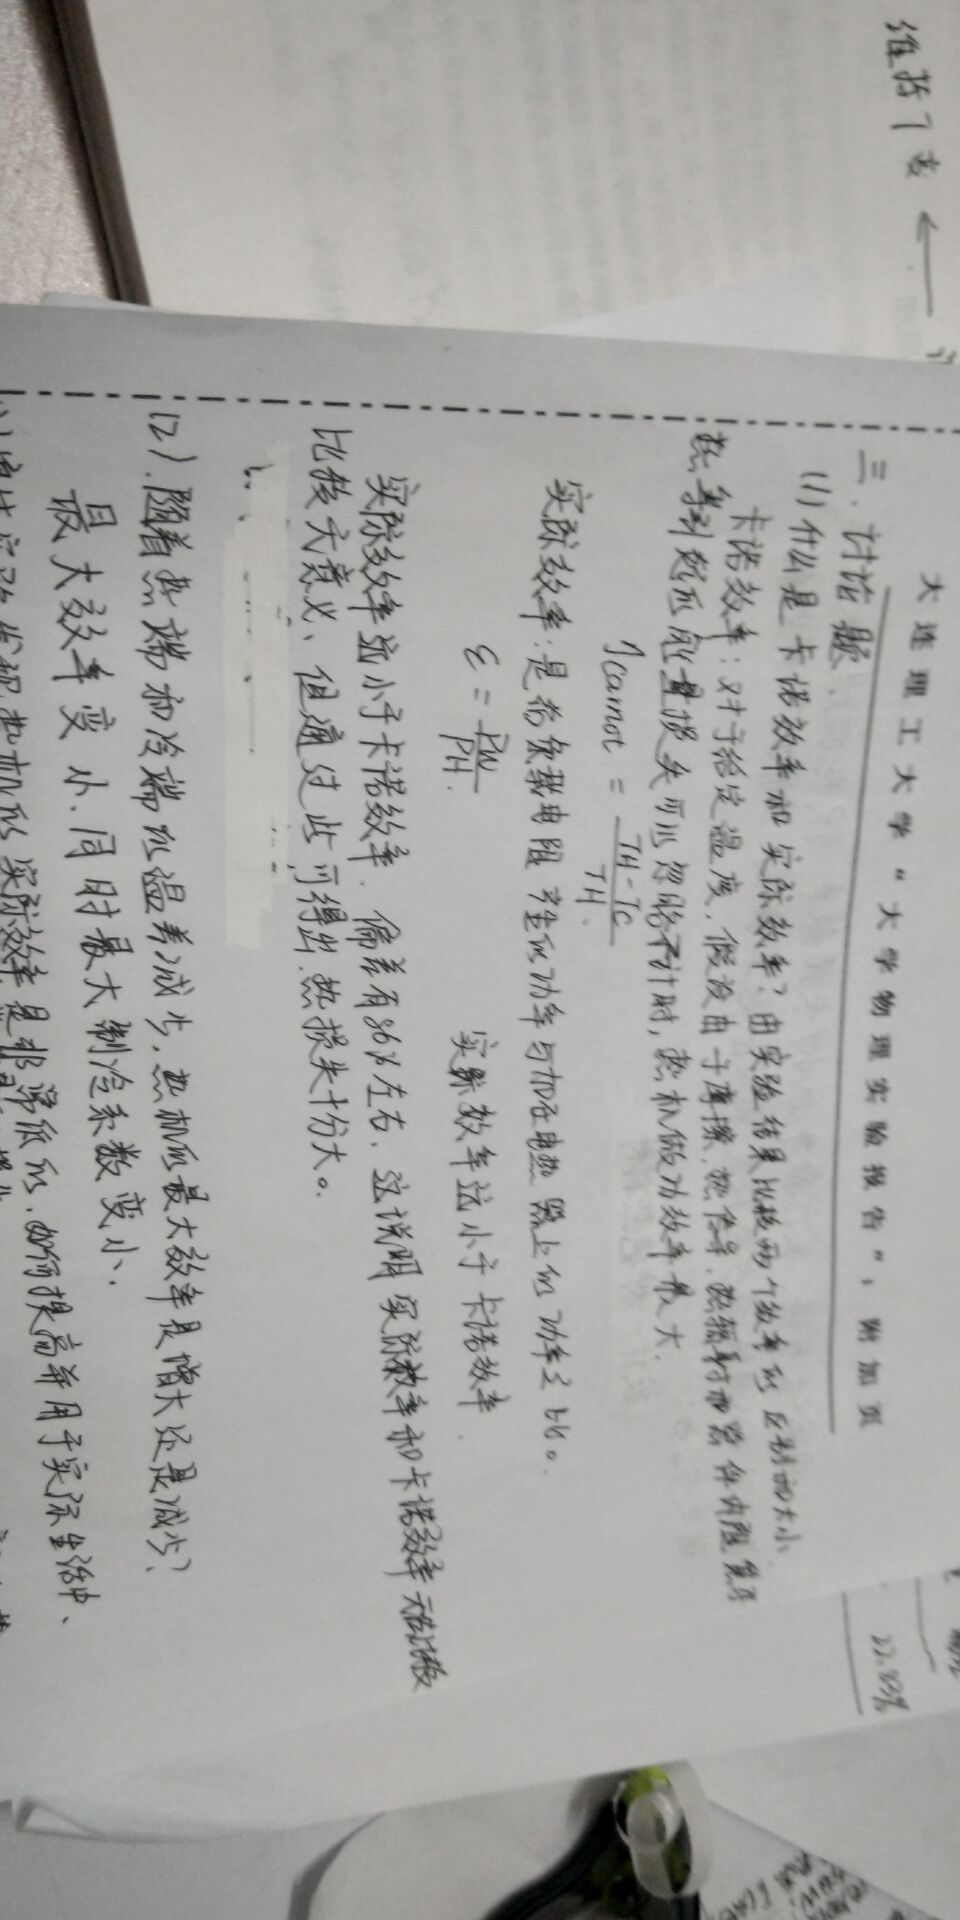 维持了
22.83%
大连理工大学“大学物理实验报告”：附加页
三.讨论题.
(1)什么是卡诺效率和实际效率?由实验结果比较两个效率的区别和大小.
卡诺效率:对于给定温度.假设由于摩擦.热传导.热辐射和器件内阻焦耳
热等引起的能量损失可以忽略不计时,热机做功效率最大.
ηcarnot = (TH-TC)/TH.
实际效率:是指负载电阻产生的功率与加在电热器上的功率之比。
ε = PW/PH.
实际效率远小于卡诺效率.
实际效率远小于卡诺效率.偏差有86%左右.这说明实际效率和卡诺效率
比较无意义、但通过此可得出.热损失十分大。
(2).随着热端和冷端的温差减少.热机的最大效率是增大还是减少?
最大效率变小.同时最大制冷系数变小.
实验发现热机的实际效率是非常低的.如何提高并用于实际生活中、